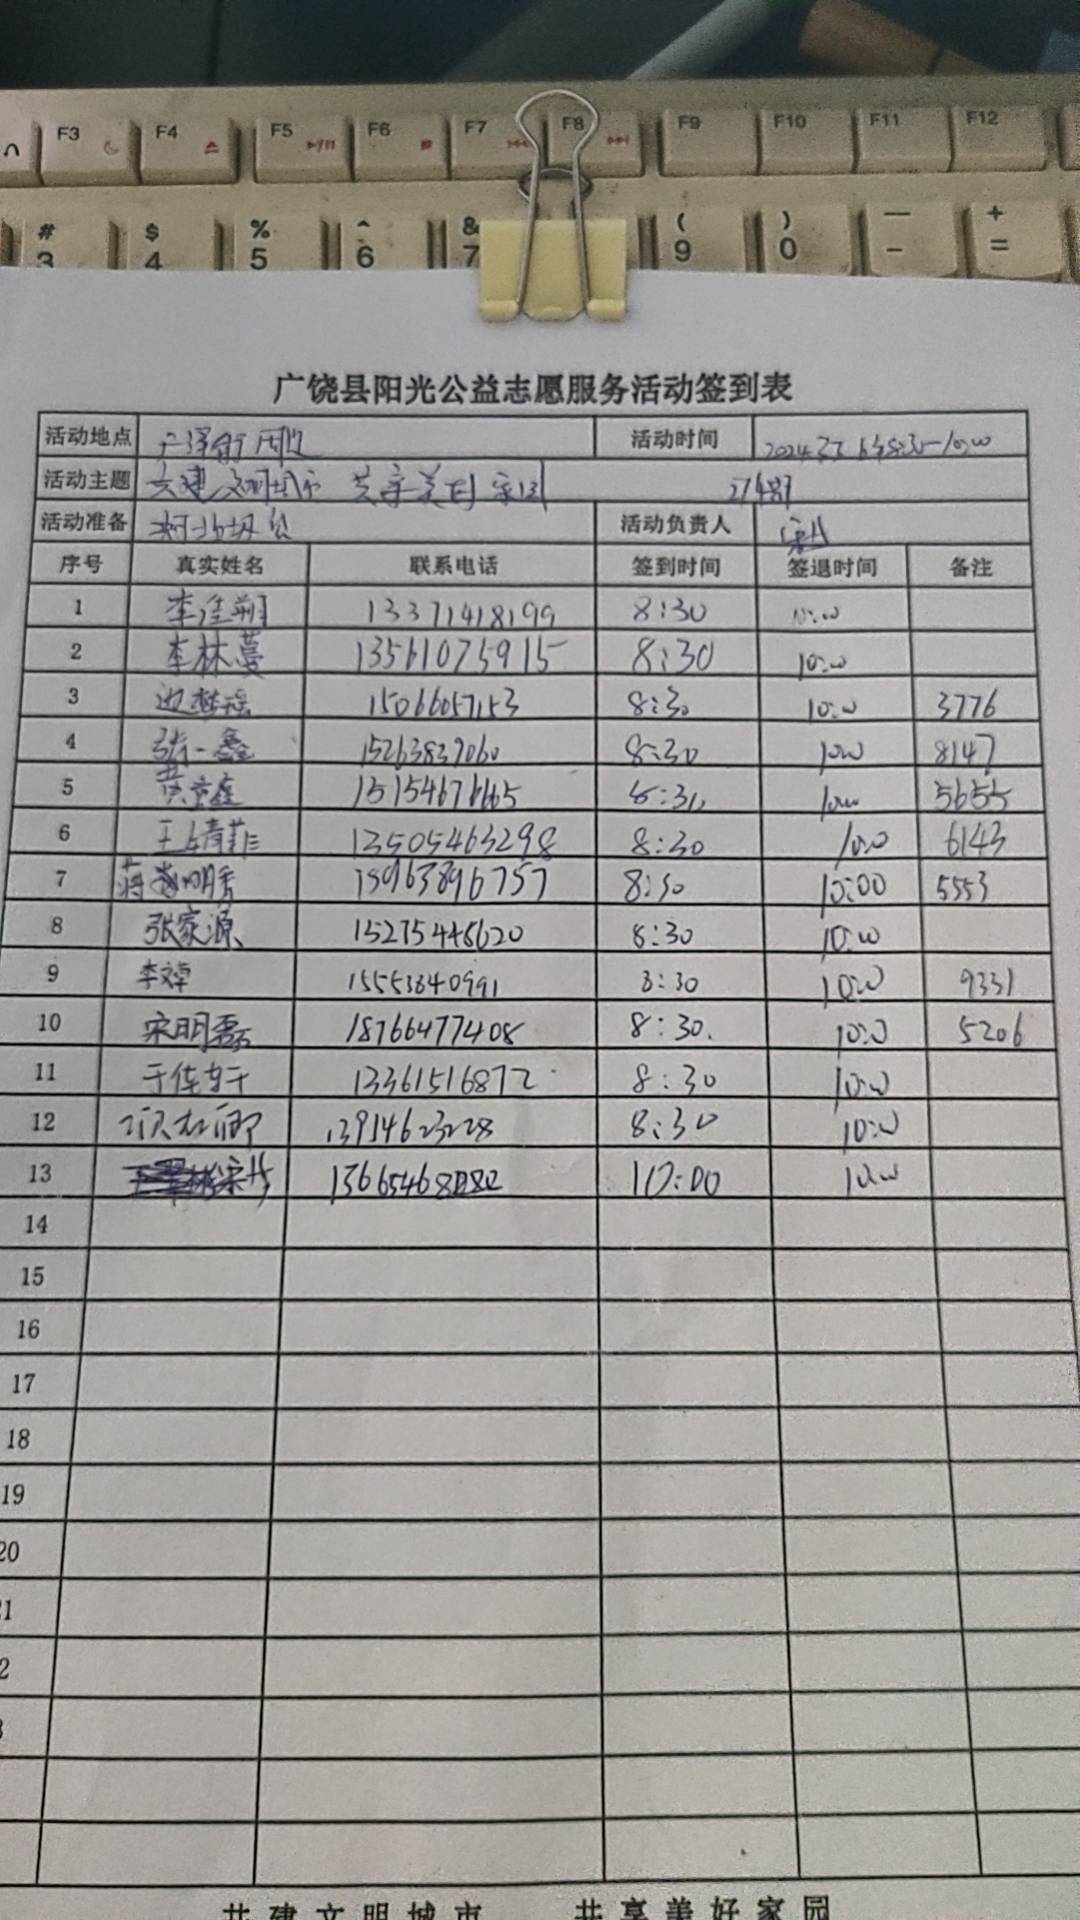 F3 F4 F5 F6 F7 F8 F9 F10 F11 F12
# $ % ^ & ( ) — +
3 4 5 6 7 9 0 - =
广饶县阳光公益志愿服务活动签到表
活动地点 活动时间
活动主题 共建文明城市 共享美好家园
活动准备 活动负责人
序号 真实姓名 联系电话 签到时间 签退时间 备注
1 李佳朔 13371418199 8:30 10:00
2 李林蔓 13561075915 8:30 10:00
3 15066057153 8:30 10:00 3776
4 张一鑫 15263839060 8:30 10:00 8147
5 15154676665 8:30 10:00 5655
6 王婧菲 13505463298 8:30 10:00 6143
7 15963896757 8:30 10:00 5553
8 张家源 15275448620 8:30 10:00
9 15553840991 8:30 10:00 9331
10 宋明磊 18766477408 8:30. 10:00 5206
11 13361516872 8:30 10:00
12 13914623228 8:30 10:00
13 10:00 10:00
14
15
16
17
18
19
20
共建文明城市 共享美好家园